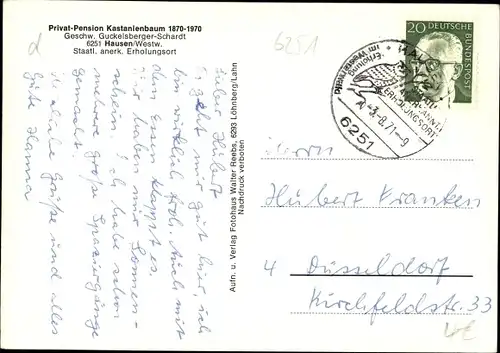 Privat-Pension Kastanienbaum 1870-1970
Geschw. Guckelsberger-Schardt
6251 Hausen/Westw.
Staatl. anerk. Erholungsort
Lieber Hubert
Es geht mir gut hier, ich
bin wirklich froh. Auch mit
dem Essen klappt es.
wir haben nur Sonnen-
schein. Ich habe schon
mehrere große Spaziergänge
gemacht.
Herzliche Grüße und alles
Gute Hanna
Aufn. u. Verlag Fotohaus Walter Reebs, 6293 Löhnberg/Lahn
Nachdruck verboten
6251
20
DEUTSCHE BUNDESPOST
HAUSEN
Erholung im Westerwald
ERHOLUNGSORT
-3.-8.71-9
6251
Herrn
Hubert Franken
4 Düsseldorf
Kirchfeldstr. 33